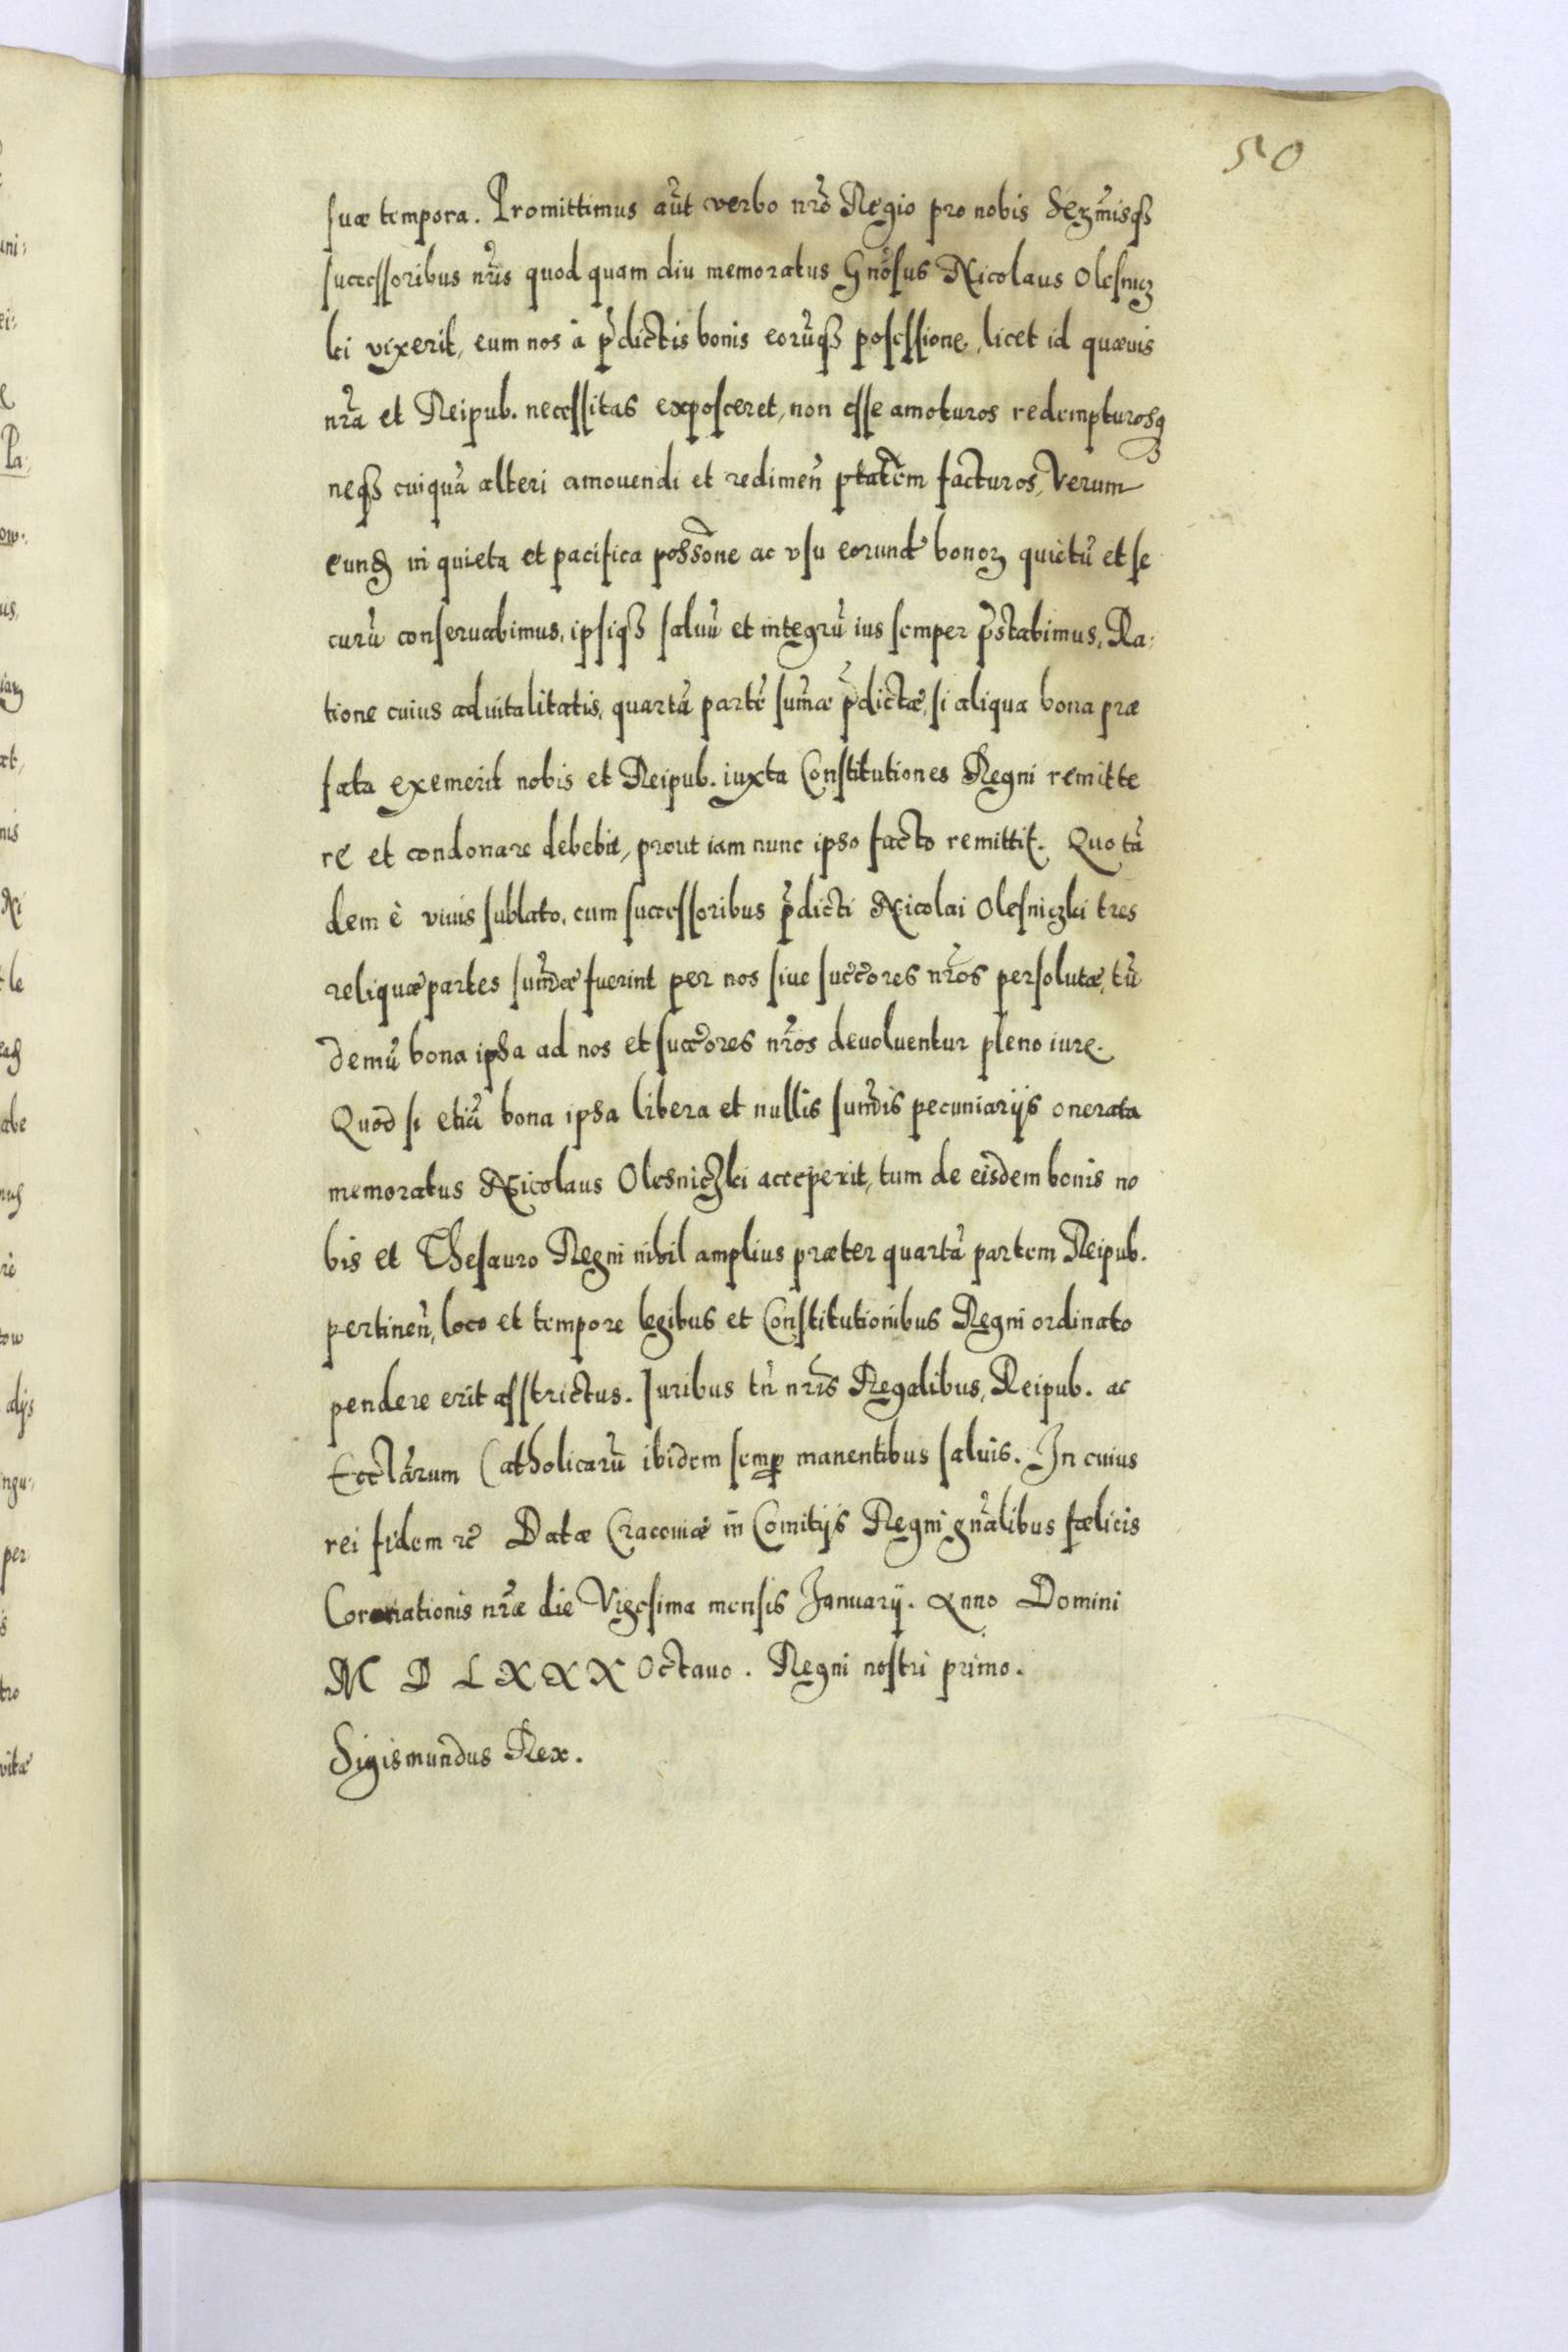 50
suæ tempora. Promittimus aũt verbo nr̃o Regio pro nobis Serm̃isq3
successoribus nr̃is quod quam diu memoratus Gnõsus Nicolaus Olesnicz
ki vixerit, eum nos à p̃dictis bonis eorũq3 posessione, licet id quævis
nr̃a et Reipub. necessitas exposceret, non esse amoturos redempturosq3
neq3 cuiquã alteri amouendi et redimeñ ptatẽm facturos, Verum
eund in quieta et pacifica possõne ac vsu eorund bonoꝝ quietũ et se
curũ conseruabimus, ipsiq3 saluũ et integrũ ius semper p̃stabimus, Ra-
tione cuius aduitalitatis, quartã partẽ sum̃æ p̃dictæ, si aliqua bona præ
fata exemerit nobis et Reipub. iuxta Constitutiones Regni remitte
re et condonare debebit, prout iam nunc ipso facto remittit. Quo tã
dem è viuis sublato, cum successoribus p̃dicti Nicolai Olesniczki tres
reliquæ partes sum̃æ fuerint per nos siue succ̃ores nr̃os persolutæ, tũ
demũ bona ipsa ad nos et succ̃ores nr̃os deuoluentur pleno iure.
Quod si etiã bona ipsa libera et nullis sum̃is pecuniarijs onerata
memoratus Nicolaus Olesniczki acceperit, tum de eisdem bonis no
bis et Thesauro Regni nihil amplius præter quartã partem Reipub.
pertineñ, loco et tempore legibus et Constitutionibus Regni ordinato
pendere erit asstrictus. Iuribus tñ nr̃is Regalibus, Reipub. ac
Eccl̃arum Catholicarũ ibidem semꝑ manentibus saluis. In cuius
rei fidem rc̃ Datæ Cracouiæ in Comitijs Regni gñalibus fœlicis
Coronationis nr̃æ die Vigesima mensis Januarij. Anno Domini
M D L X X X Octauo. Regni nostri primo.
Sigismundus Rex.